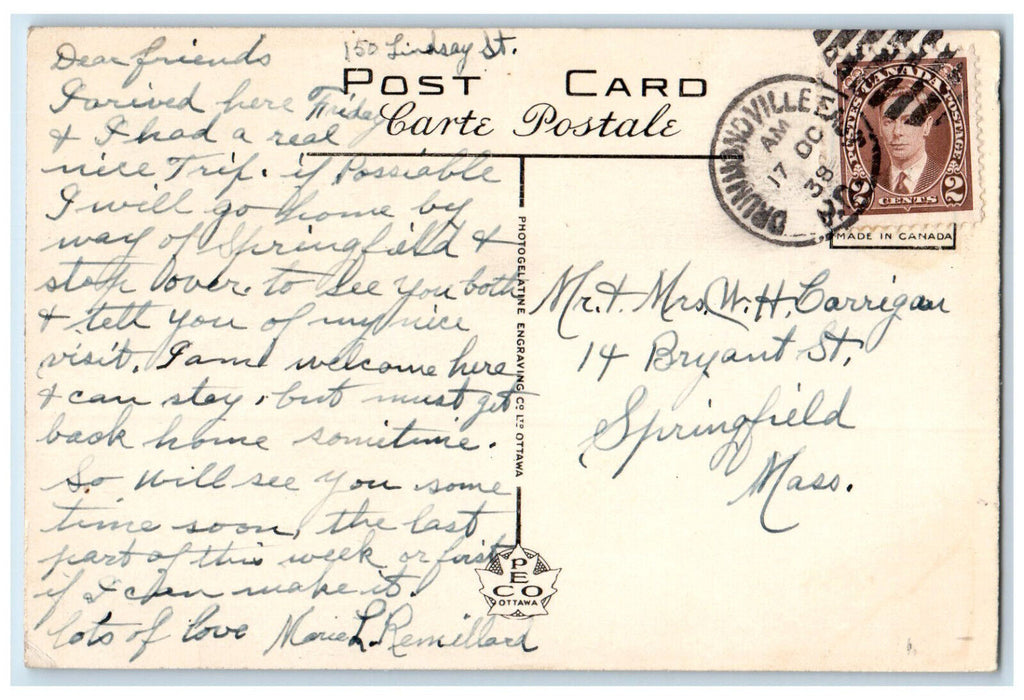 150 Lindsay St.
Dear friends
I arived here on Friday
& I had a real
nice Trip. if Possiable
I will go home by
way of Springfield &
stop over. to see you both
& tell you of my nice
visit. I am welcome here
& can stay, but must get
back home somitime.
So will see you some
time soon, the last
part of this week or first
if I can make it.
lots of love Marie L. Remillard
POST CARD
Carte Postale
PHOTOGELATINE ENGRAVING Co LTD OTTAWA
PECO
OTTAWA
DRUMMONDVILLE
AM
17 OC
38
CANADA POSTAGE
2 CENTS 2
MADE IN CANADA
Mr. & Mrs. W. H. Carrigan
14 Bryant St,
Springfield
Mass.